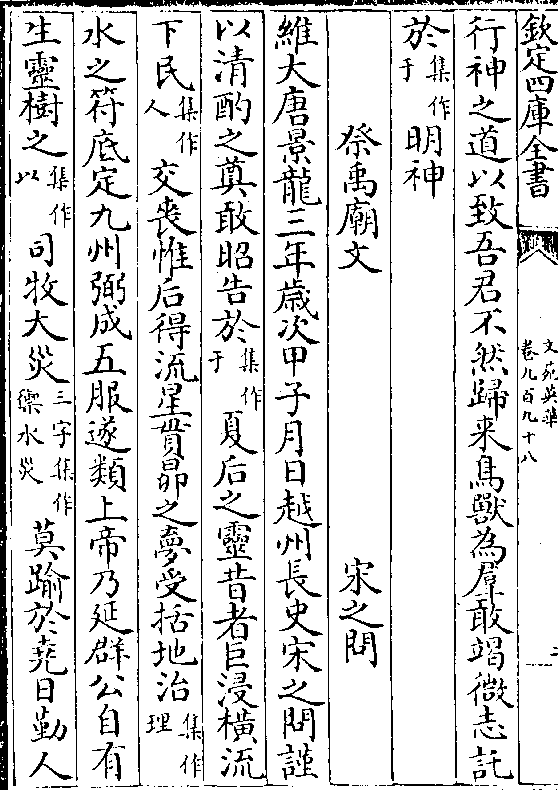 欽定四庫全書
文苑英華
卷九百九十八
二
行神之道以致吾君不然歸来鳥獸為羣敢竭微志託
於集作于明神
祭禹廟文 宋之問
維大唐景龍三年歲次甲子月日越州長史宋之問謹
以清酌之奠敢昭告於集作于夏后之靈昔者巨浸橫流
下民集作人交喪惟后得流星貫昴之夢受括地治集作理
水之符底定九州弼成五服遂類上帝乃延群公自有
生靈樹之集作以司牧大災三字集作禦水災莫踰於堯日勤人